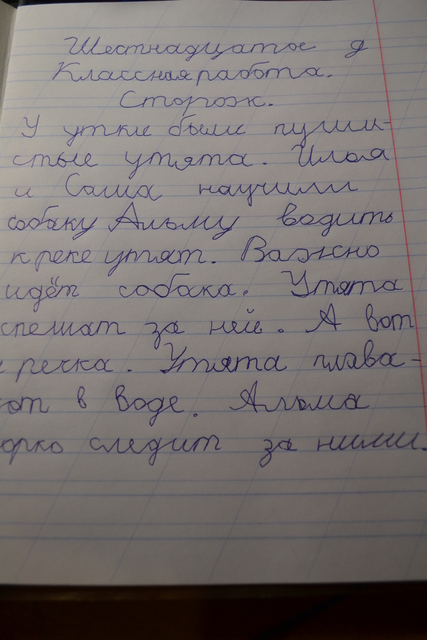 Шестнадцатое д
Классная работа.
Сторож.
У утки были пуши-
стые утята. Илья
и Саша научили
собаку Альму водить
к реке утят. Важно
идёт собака. Утята
спешат за ней. А вот
речка. Утята плава-
ют в воде. Альма
орко следит за ними.